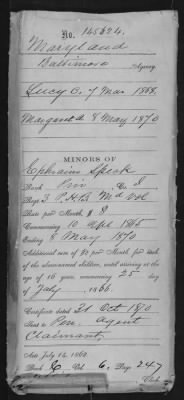 No. 145624.
Maryland
Baltimore Agency.
Lucy C. 7 Mar 1868.
Margaret A 8 May 1870
MINORS OF
Ephraim Speck
Rank Priv Co. I
Regt 3 P.H.B. Md Vol
Rate per Month, $ 8
Commencing 10 Apl 1865
Ending 8 May 1870
Additional sum of $2 per month for each
of the aforenamed children, until arriving at the
age of 16 years, commencing 25 day
of July, 1866.
Certificate dated 21 Oct 1870
Sent to Pen. Agent
Claimant,
Acts July 14, 1862
Book C Vol. 6, Page 247
Clerk.